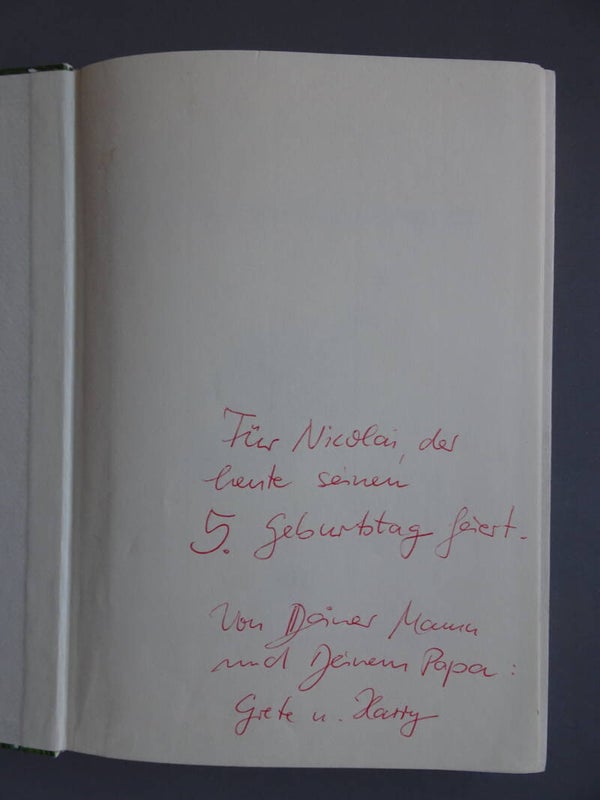 Für Nicolai, der
heute seinen
5. Geburtstag feiert.
Von Deiner Mama
und Deinem Papa:
Grete u. Harry